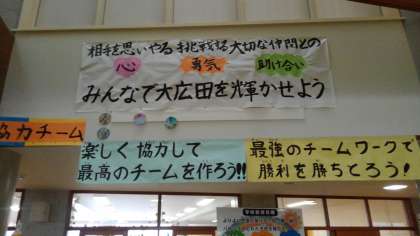 相手を思いやる 挑戦する 大切な仲間との
心 勇気 助け合い
みんなで大広田を輝かせよう
協力チーム
楽しく協力して
最高のチームを作ろう!!
最強のチームワークで
勝利を勝ちとろう!